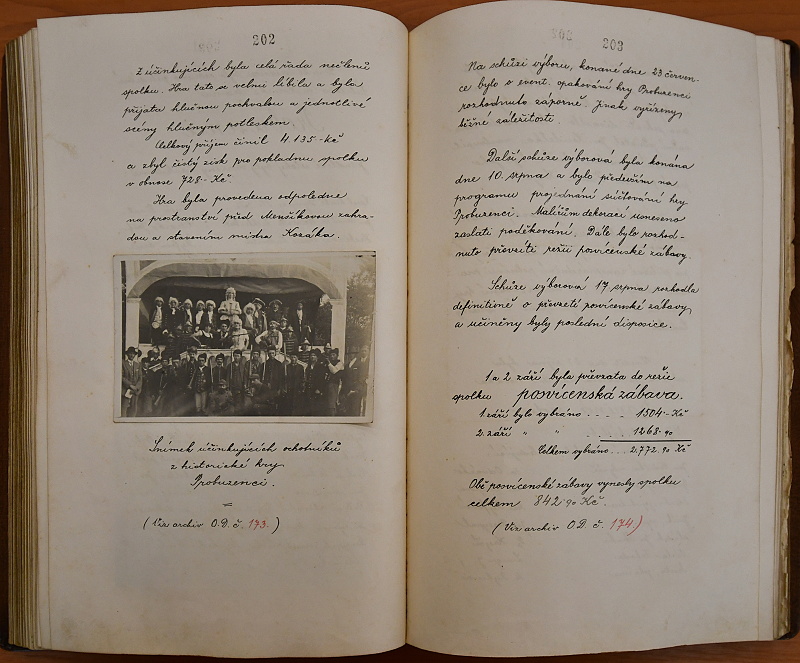 202
Z účinkujících byla celá řada nečlenů
spolku. Hra tato se velmi líbila a byla
přijata hlučnou pochvalou a jednotlivé
scény hlučným potleskem.
Celkový příjem činil 4.135-Kč
a zbyl čistý zisk pro pokladnu spolku
v obnose 728-Kč
Hra byla provedena odpoledne
na prostranství před Menšíkovou zahra-
dou a stavením mistra Kozáka.
Snímek účinkujících ochotníků
z historické hry
Probuzenci.
(Viz archiv O.D. č. 173.)
203
Na schůzi výboru, konané dne 23 červen-
ce bylo o event. opakování hry Probuzenci
rozhodnuto záporně. Jinak vyřízeny
běžné záležitosti
Další schůze výborová byla konána
dne 10. srpna a bylo především na
programu projednání súčtování hry
Probuzenci. Malířům dekorací usneseno
zaslati poděkování. Dále bylo rozhod-
nuto převzíti režii posvícenské zábavy.
Schůze výborová 17 srpna rozhodla
definitivně o převzetí posvícenské zábavy
a učiněny byly poslední disposice.
1 a 2 září byla převzata do režie
spolku posvícenská zábava.
1 září bylo vybráno .... 1504.-Kč
2. září " " ..... 1268.90
Celkem vybráno... 2.772.90 Kč
Obě posvícenské zábavy vynesly spolku
celkem 842 90 Kč.
(Viz archiv O.D. č. 174.)